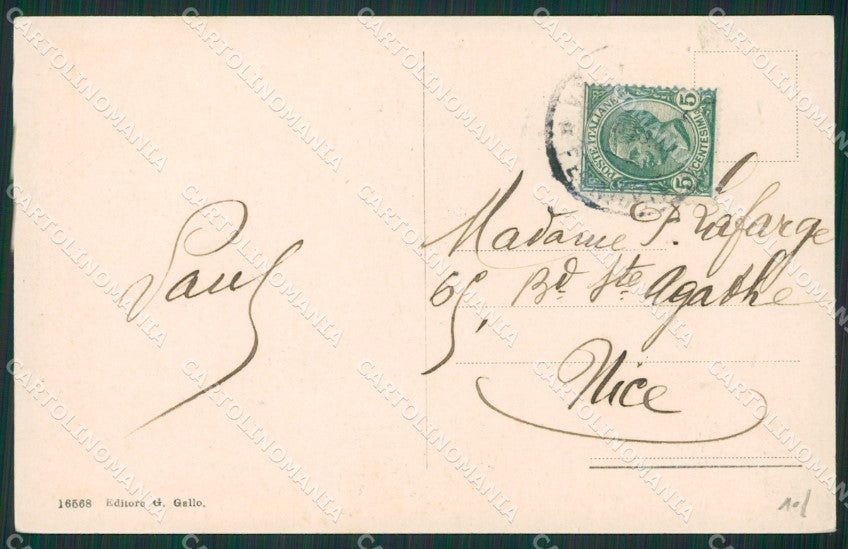 POSTE ITALIANE
CENTESIMI
5 5
Paul
Madame P. Lafarge
65, Bd. Ste Agathe
Nice
16568 Editore G. Gallo.
CARTOLINOMANIA